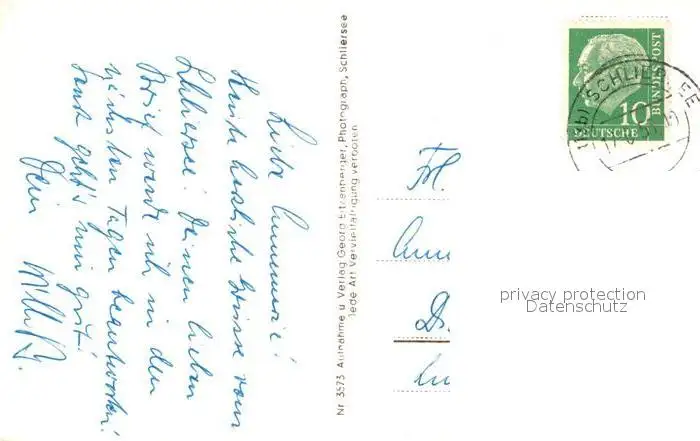 Liebe Annemarie!
Heute herzliche Grüsse vom
Schliersee! Deinen lieben
Brief werde ich in den
nächsten Tagen beantworten!
Sonst geht's mir gut!
Dein
Willi
Nr 3573 Aufnahme u Verlag Georg Etzenberger, Photograph, Schliersee
Jede Art Vervielfältigung verboten
Frl.
DEUTSCHE
BUNDESPOST
10
SCHLIERSEE
privacy protection
Datenschutz